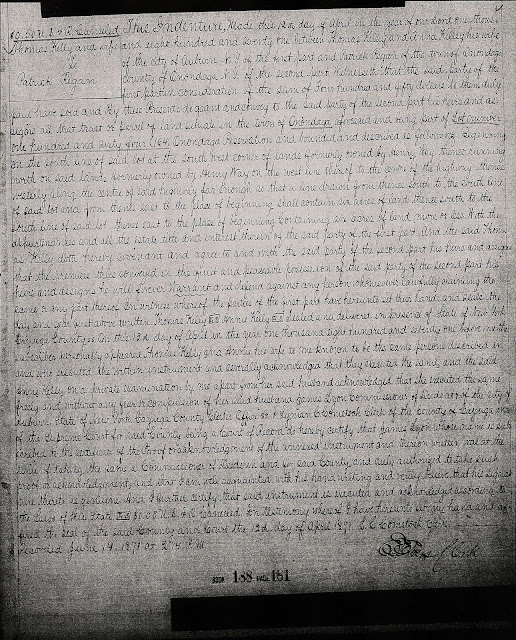 $0.50 U.S. I.R. Canceled This Indenture, Made this 12th day of April in the year of our Lord one thous-
Thomas Kelly and wife and eight hundred and seventy one between Thomas Kelly and Annie Kelly his wife
To of the city of Auburn N.Y. of the first part and Patrick Regan of the town of Onondaga
Patrick Regan County of Onondaga N.Y. of the second part Witnesseth that the said party of the
first part in consideration of the sum of Four hundred and fifty dollars to them duly
paid have sold and By these Presents do grant and convey to the said party of the second part his heirs and as-
signs all that tract or parcel of land situate in the town of Onondaga aforesaid and being part of Lot number
one hundred and sixty four 164, Onondaga Reservation and bounded and described as follows: Beginning
on the south line of said lot at the south west corner of lands formerly owned by Henry Way thence running
north on said lands formerly owned by Henry Way on the west line thereof to the centre of the highway thence
westerly along the centre of said highway far enough so that a line drawn from thence south to the south line
of said lot and from thence east to the place of beginning shall contain six acres of land thence south to the
south line of said lot thence east to the place of beginning containing six acres of land more or less. With the
appurtenances and all the estate title and interest therein of the said party of the first part. And the said Thom-
as Kelly doth hereby covenant and agree to and with the said party of the second part his heirs and assigns
that the premises thus conveyed in the quiet and peaceable possession of the said party of the second part his
heirs and assigns he will forever Warrant and Defend against any person whomsoever lawfully claiming the
same or any part thereof. In witness whereof the parties of the first part have hereunto set their hands and seals the
day and year first above written. Thomas Kelly Annie Kelly Sealed and delivered in presence of State of New York
Cayuga County ss On this 12th day of April in the year one thousand eight hundred and seventy one before me the
subscriber personally appeared Thomas Kelly and Annie his wife to me known to be the same persons described in
and who executed the within instrument and severally acknowledged that they executed the same, and the said
Annie Kelly on a private examination by me apart from her said husband acknowledged that she executed the same
freely and without any fear or compulsion of her said husband James Lyon Commissioner of Deeds of the city of
Auburn. State of New York Cayuga County Clerks Office ss I Comstock Clerk of the County of Cayuga and
of the Supreme Court for said County being a Court of Record do hereby certify that James Lyon whose name is sub-
scribed to the certificate of the proof or acknowledgment of the annexed instrument and thereon written was at the
time of taking the same a Commissioner of Deeds in and for said County and duly authorized to take such
proof or acknowledgment, and that I am well acquainted with his handwriting and verily believe that his signa-
ture thereto is genuine. And I further certify that said instrument is executed and acknowledged according to
the laws of this State. In testimony whereof I have hereunto set my hand and af-
fixed the seal of the said County and Court the 12th day of April 1871. Comstock Clerk
Recorded June 14, 1871 at P.M.
Clerk
BOOK 188 PAGE 181